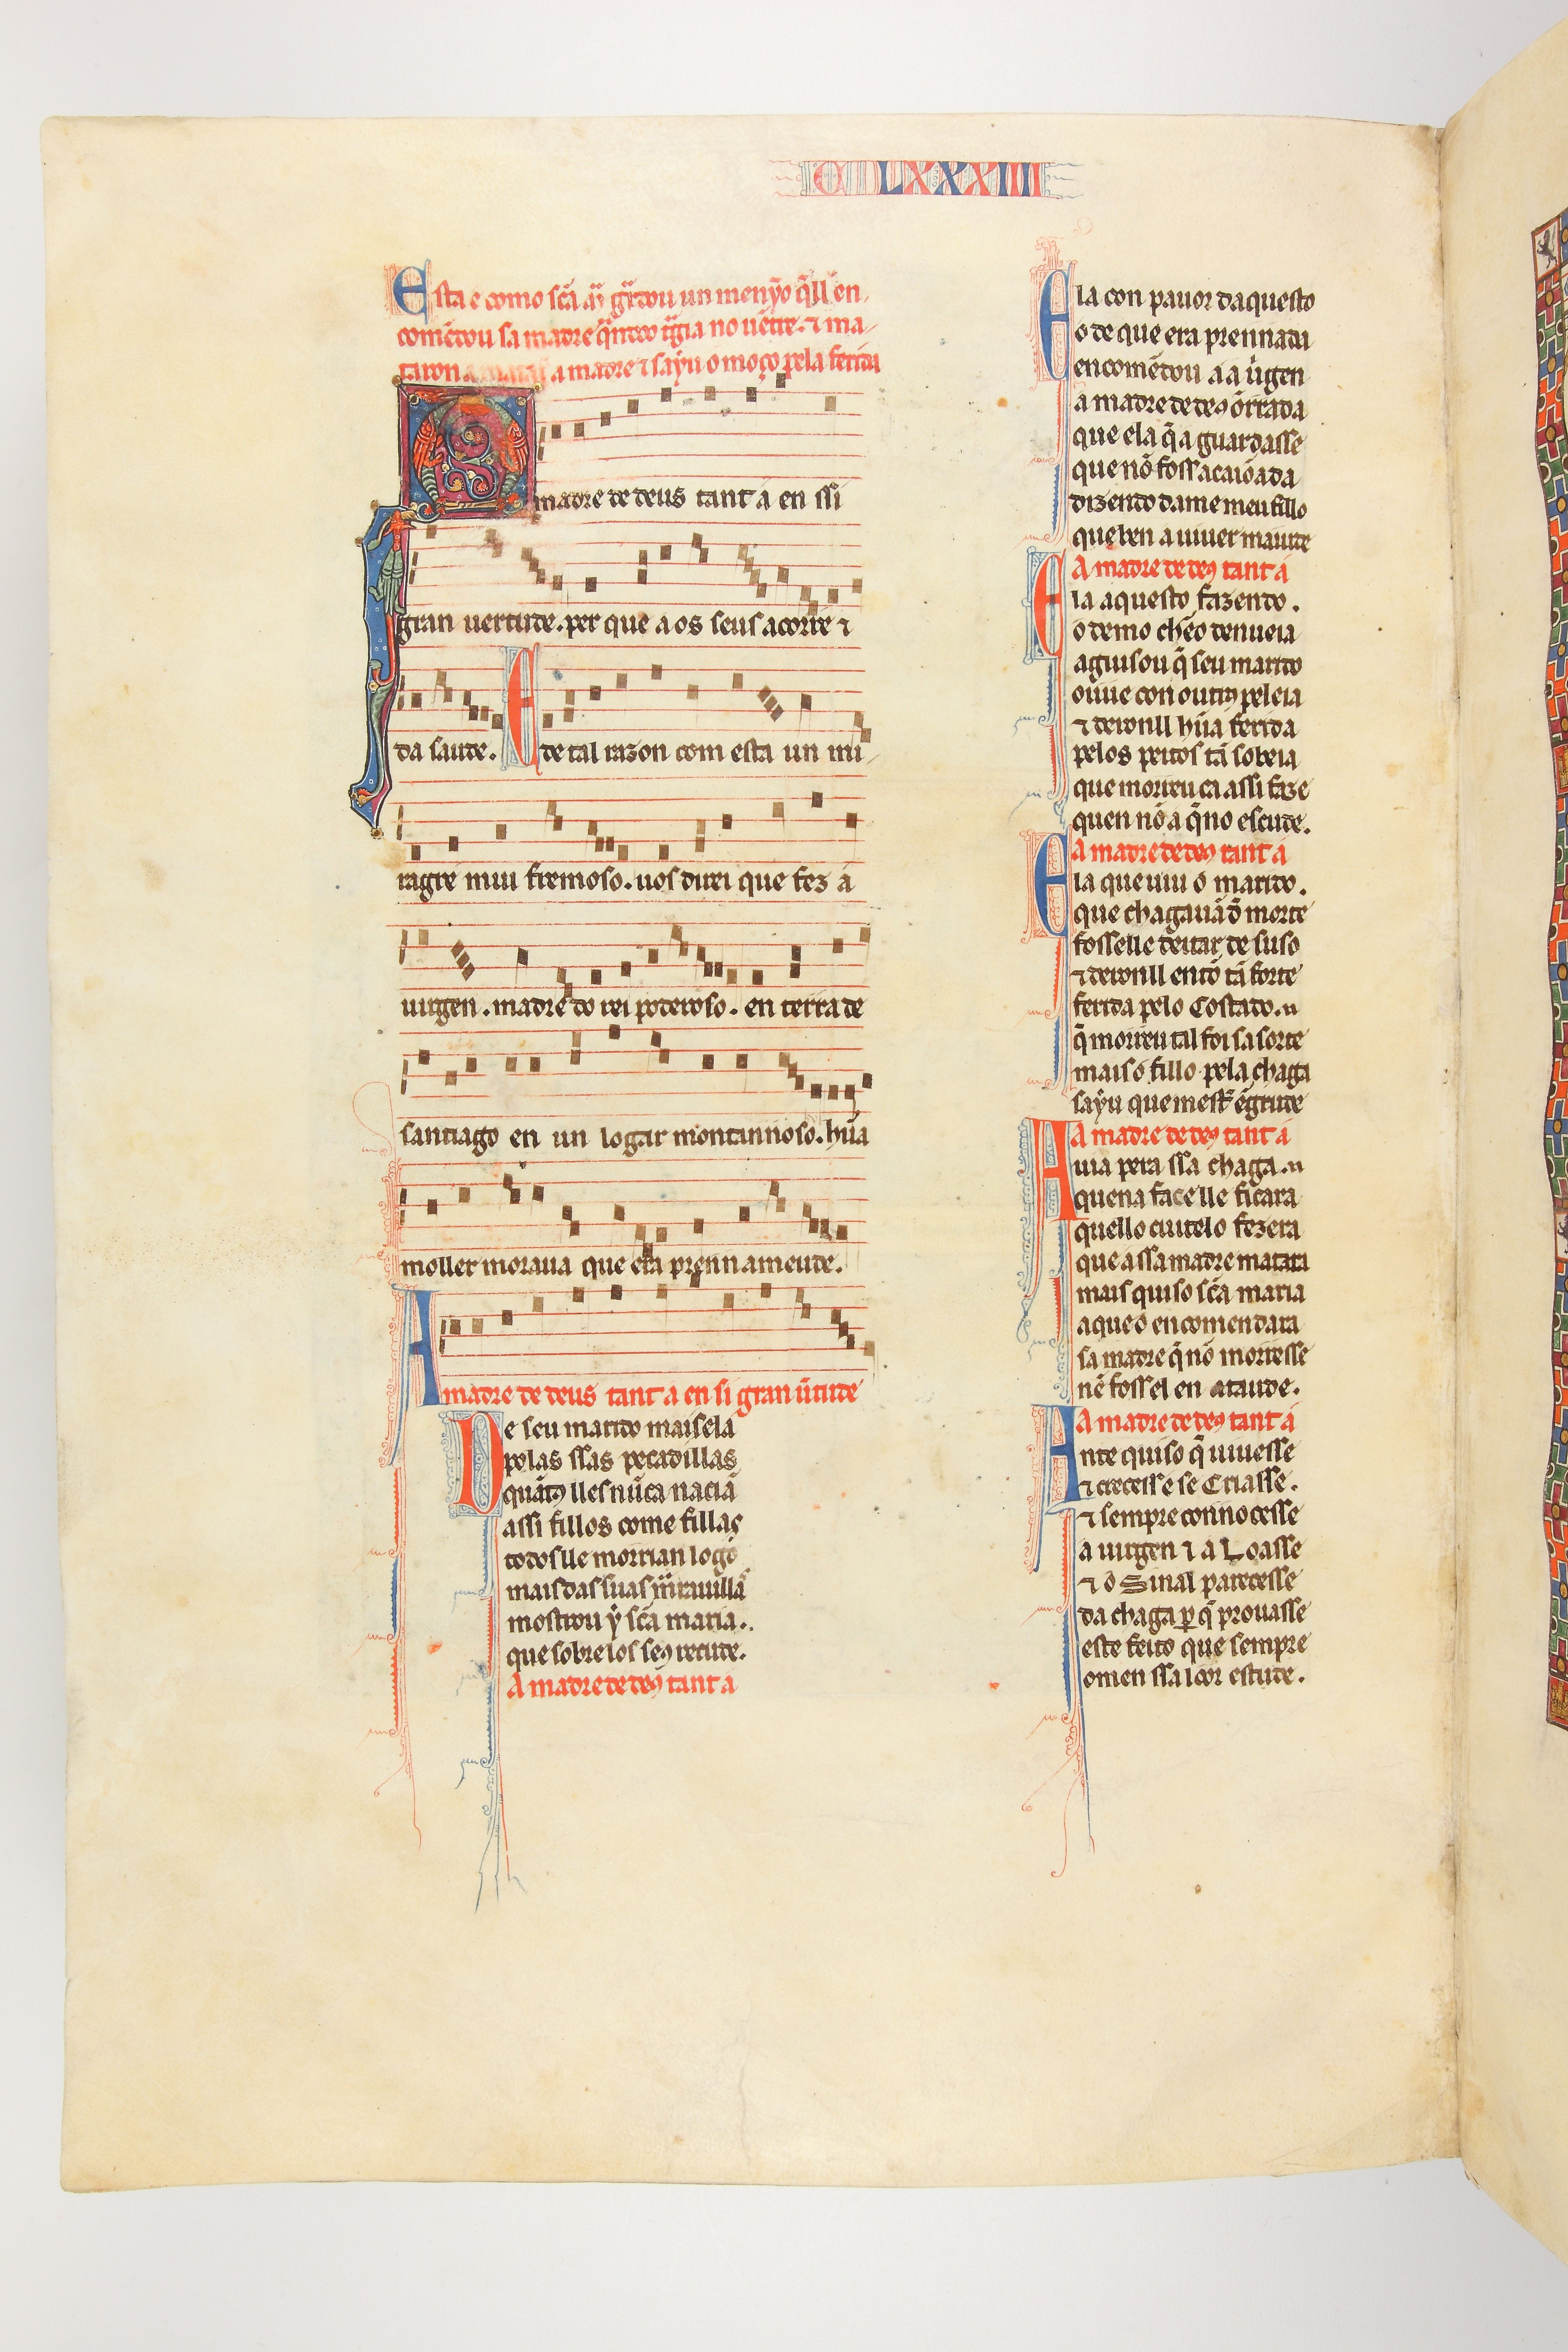 C LXXXIIII
Esta e como scã mã gr̃dou un menỹo q̃ ll en
comẽdou sa madre q̃ndoo tr̃gia no uẽtre. ⁊ ma
taron a madre ⁊ saỹu o moço pela ferida
A madre de deus tant á en ssi
gran uertude. per que aos seus acorre ⁊
da saude. E de tal razon com esta un mi
ragre mui fremoso. uos direi que fez a
uirgen. madre do rei poderoso. en terra de
santiago en un logar montannoso. hũa
moller moraua que era prenn ameude.
A madre de deus tant a en si gran ũtude
De seu marido mais ela
polas ssas pecadillas
quãtꝯ lles nũca naciã
assi fillos come fillas
todos lle morrian logo
mais das suas m̃rauillas
mostrou ý scã maria.
que sobrelos seꝯ recude.
A madre de deꝯ tant a
Ela con pauor daquesto
o de que era prennada
encomẽdou a a ũgen
a madre de deꝯ õrrada
que ela q̃ a guardasse
que nõ foss acaiõada
dizendo dame meu fillo
que ben a uiuer maiude
A madre de deꝯ tant a
Ela aquesto fazendo.
o demo chẽo denueia
aguisou q̃ seu marido
ouue con outrꝯ peleia
⁊ deronll hũa ferida
pelos peitos tã sobeia
que morreu ca assi faze
quen nõ a q̃no escude.
A madre de deꝯ tant a
Ela que uiu o marido.
que chagauã d̃ morte
fosselle deitar de suso
⁊ deronll entõ tã forte
ferida pelo Costado.
q̃ morreu tal foi sa sorte
mais o fillo pela chaga
saỹu que mestr̃ ẽgrude
A madre de deꝯ tant a
Auia pera ssa chaga.
quena face lle ficara
quello cuitelo fezera
que a ssa madre matara
mais quiso scã maria
a queo encomendara
sa madre q̃ nõ morresse
nẽ fossel en ataude.
A madre de deꝯ tant á
Ante quiso q̃ uiuesse
⁊ crecesse se Criasse.
⁊ sempre connocesse
a uirgen ⁊ a Loasse
⁊ o Sinal parecesse
da chaga ꝑ q̃ prouasse
este feito que sempre
omen ssa loor estude.